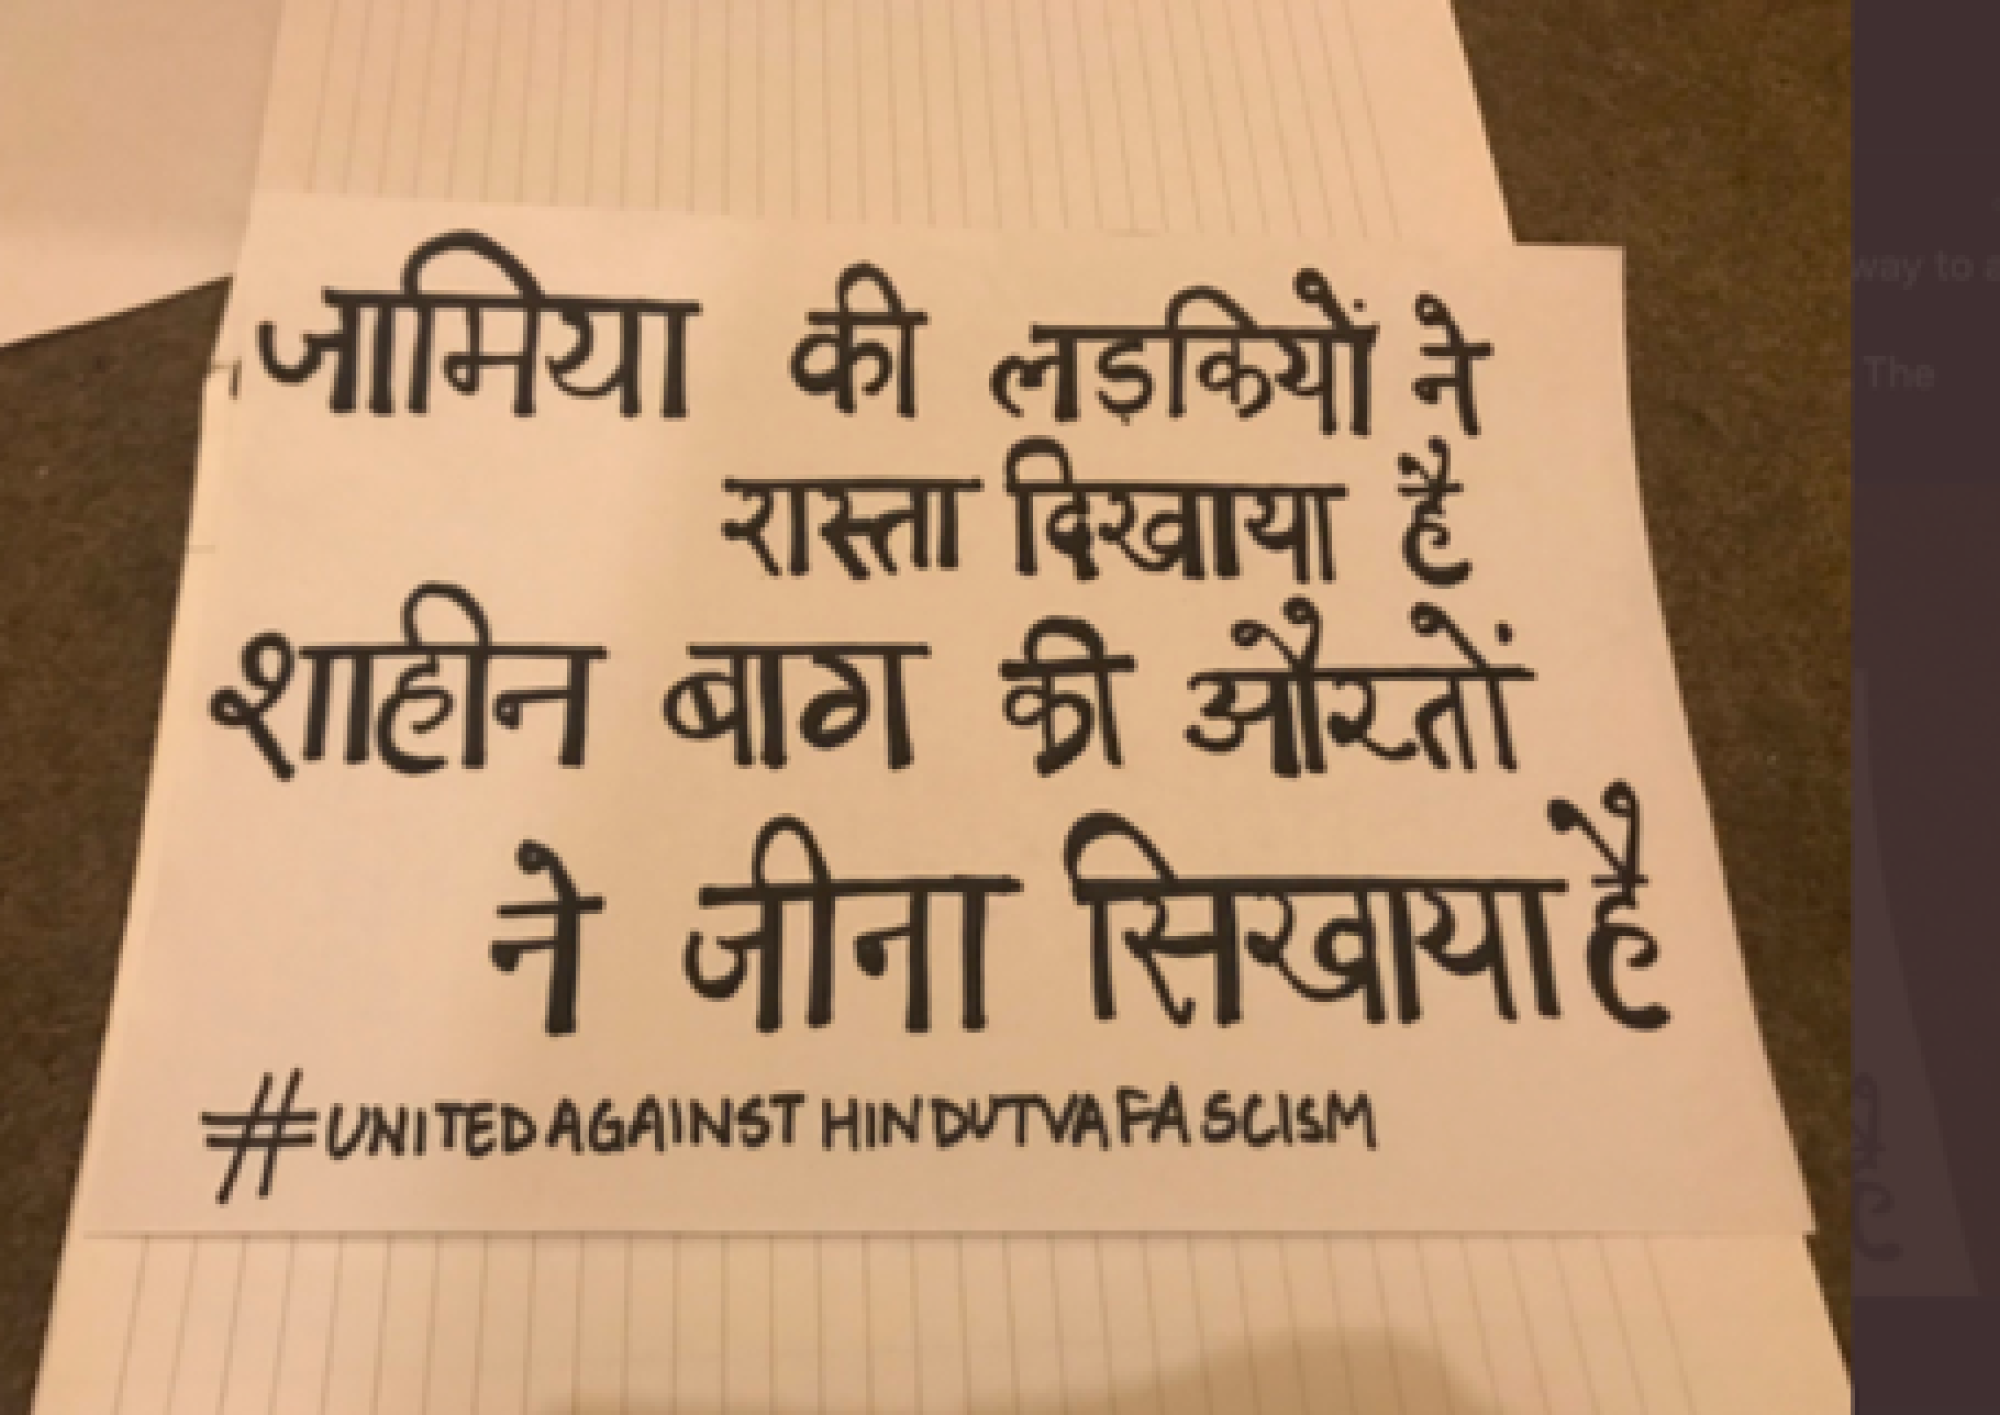 जामिया की लड़कियों ने
रास्ता दिखाया है
शाहीन बाग की औरतों
ने जीना सिखाया है
#UNITEDAGAINST HINDUTVAFASCISM
way to a
The